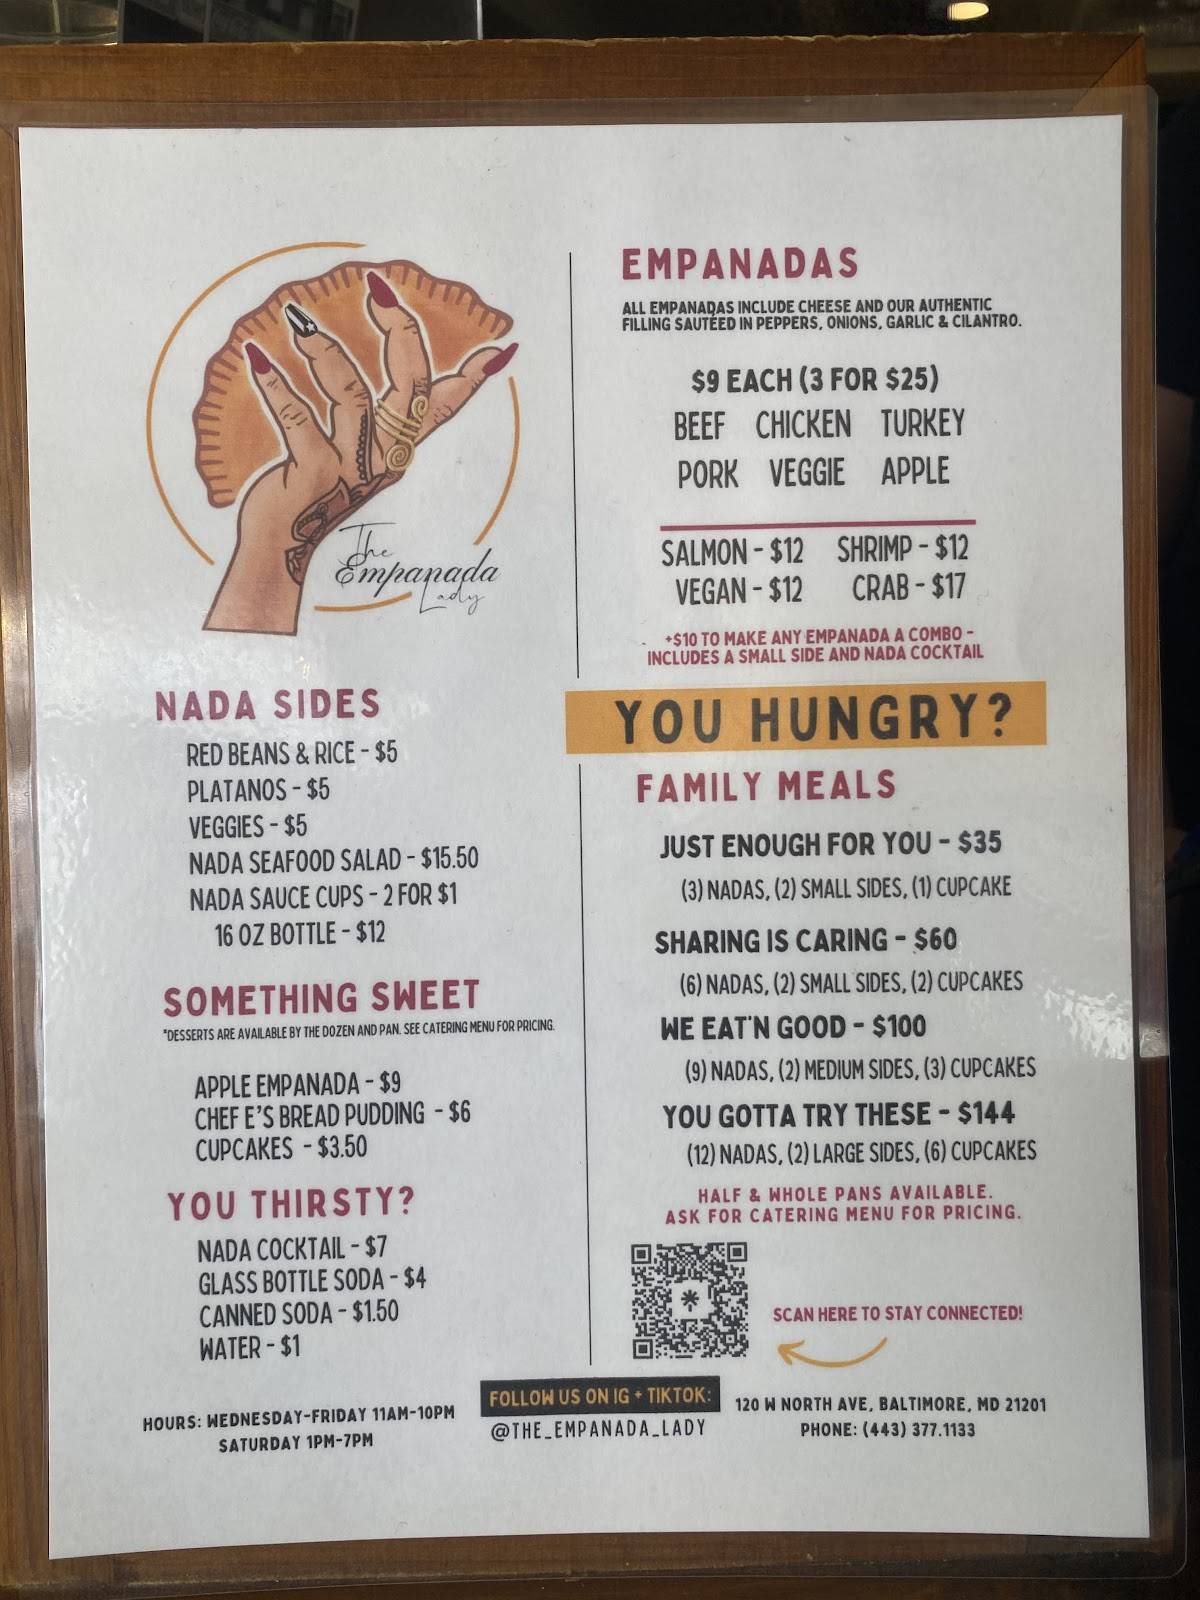 The
Empanada
Lady
NADA SIDES
RED BEANS & RICE - $5
PLATANOS - $5
VEGGIES - $5
NADA SEAFOOD SALAD - $15.50
NADA SAUCE CUPS - 2 FOR $1
16 OZ BOTTLE - $12
SOMETHING SWEET
*DESSERTS ARE AVAILABLE BY THE DOZEN AND PAN. SEE CATERING MENU FOR PRICING.
APPLE EMPANADA - $9
CHEF E'S BREAD PUDDING - $6
CUPCAKES - $3.50
YOU THIRSTY?
NADA COCKTAIL - $7
GLASS BOTTLE SODA - $4
CANNED SODA - $1.50
WATER - $1
EMPANADAS
ALL EMPANADAS INCLUDE CHEESE AND OUR AUTHENTIC
FILLING SAUTÉED IN PEPPERS, ONIONS, GARLIC & CILANTRO.
$9 EACH (3 FOR $25)
BEEF CHICKEN TURKEY
PORK VEGGIE APPLE
SALMON - $12 SHRIMP - $12
VEGAN - $12 CRAB - $17
+$10 TO MAKE ANY EMPANADA A COMBO -
INCLUDES A SMALL SIDE AND NADA COCKTAIL
YOU HUNGRY?
FAMILY MEALS
JUST ENOUGH FOR YOU - $35
(3) NADAS, (2) SMALL SIDES, (1) CUPCAKE
SHARING IS CARING - $60
(6) NADAS, (2) SMALL SIDES, (2) CUPCAKES
WE EAT'N GOOD - $100
(9) NADAS, (2) MEDIUM SIDES, (3) CUPCAKES
YOU GOTTA TRY THESE - $144
(12) NADAS, (2) LARGE SIDES, (6) CUPCAKES
HALF & WHOLE PANS AVAILABLE.
ASK FOR CATERING MENU FOR PRICING.
SCAN HERE TO STAY CONNECTED!
HOURS: WEDNESDAY-FRIDAY 11AM-10PM
SATURDAY 1PM-7PM
FOLLOW US ON IG + TIKTOK:
@THE_EMPANADA_LADY
120 W NORTH AVE, BALTIMORE, MD 21201
PHONE: (443) 377.1133